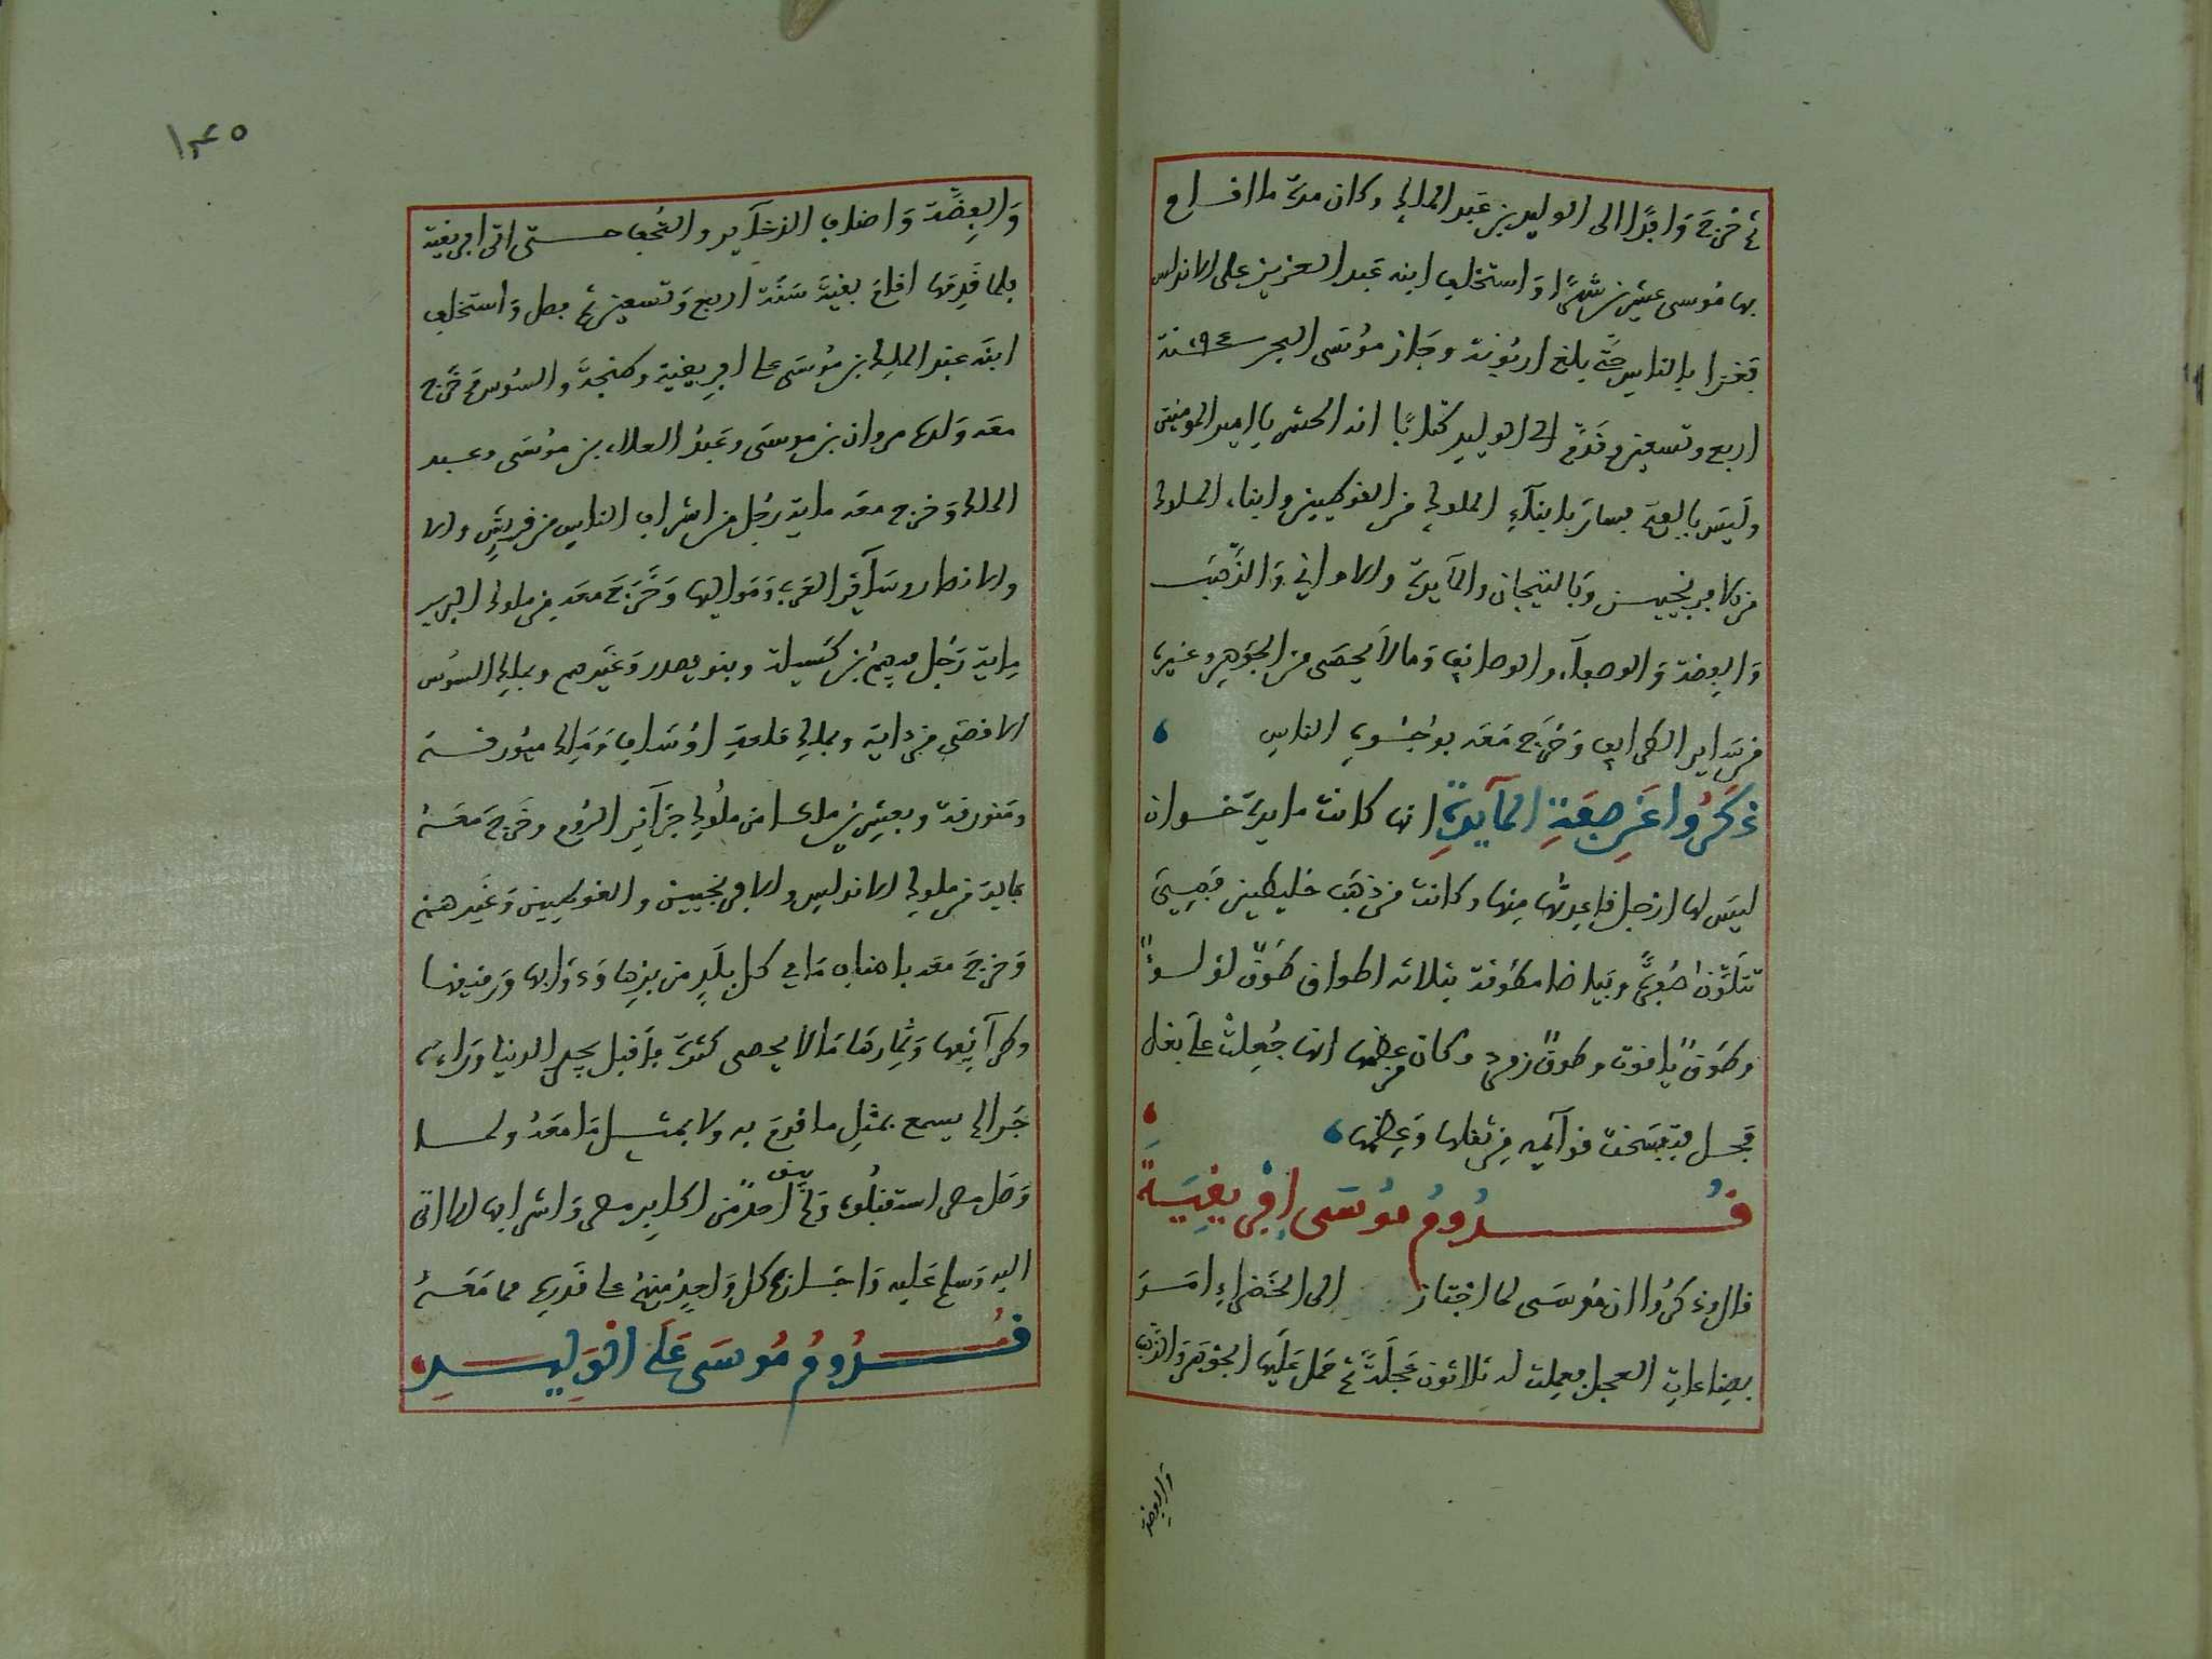 ثم خرج وافدا الى الوليد بن عبد الملك وكان مدة ما اقام
بها موسى عشرين شهرا واستخلف ابنه عبد العزيز على الاندلس
فغزا بالناس حتى بلغ اربونة وجاز موسى البحر سنة ٩٤
اربع وتسعين وقدم الى الوليد كتابا انه الحشر يا امير المومنين
وليس بالبيعة فسار بابناء الملوك من القوطيين وابناء الملوك
من الافرنجيين وبالتيجان والمآيدة والاواني والذهب
والفضة والوصفاء والوصائف وما لا يحصى من الجوهر وغيره
من سراير الطرايف وخرج معه بوجوه الناس
ذكروا عن صفة المآيدة انها كانت مايدة خوان
ليس لها ارجل قاعدتها منها وكانت من ذهب خليطين فهي
تتلون صفرة وبياضا مطوقة بثلاثه اطواق طوق لولو
وطوق ياقوت وطوق زمرد وكان من عظمها انها جعلت على بغل
فحمل فتفسخت قوائمه من ثقلها وعظمها
قدوم موسى افريقية
قال وذكروا ان موسى لما اجتاز الى الخضراء امر
بصناعات العجل فعملت له ثلاثون عجلة ثم حمل عليها الجوهر والذهب
والفضة
١٣٥
والفضة واصناف الذخآير والتحف حتى اتى افريقية
فلما قدمها اقام بقية سنة اربع وتسعين ثم قفل واستخلف
ابنه عبد الملك بن موسى على افريقية وطنجة والسوس وخرج
معه ولده مروان بن موسى وعبد العلاء بن موسى وعبد
الملك وخرج معه ماية رجل من اشراف الناس من قريش والا
والانصار وسآير العرب ومواليها وخرج معه من ملوك البربر
ماية رجل فيهم بن كسيلة وبنو يصدر وغيرهم وبملك السوس
الاقصى مزداية وبملك قلعة اوساف وملك ميورقة
ومنورقة وبعشرين ملكا من ملوك جزآئر الروم وخرج معه
بماية من ملوك الاندلس والافرنجيين والقوطيين وغيرهم
وخرج معه باصناف ما في كل بلد من بزها ودوابها ورقيقها
وطرآئفها وثمارها ما لا يحصى كثرة فاقبل يجر الدنيا وراءه
جرا لم يسمع بمثل ما قدم به ولا بمثل ما معه ولما
وصل مصر استقبلوه ولم يبق احد من اكابر مصر واشرافها الا اتى
اليه وسلم عليه واجازهم كل واحد منهم على قدره مما معه
قدوم موسى على الوليد